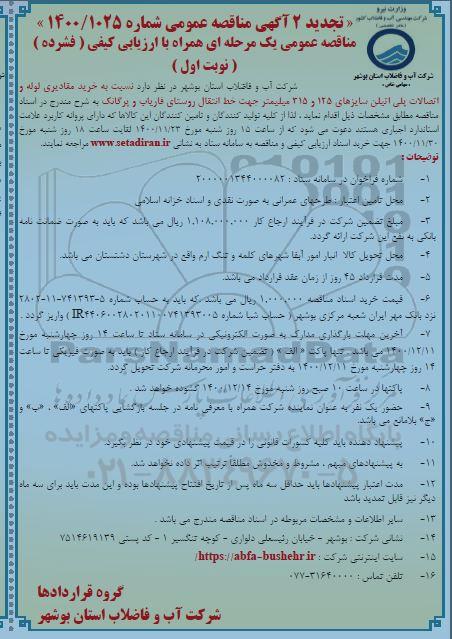 وزارت نیرو
شرکت مهندسی آب و فاضلاب کشور
شرکت آب و فاضلاب استان بوشهر
« تجدید ۲ آگهی مناقصه عمومی شماره ۱۴۰۰/۱۰۲۵ »
مناقصه عمومی یک مرحله ای همراه با ارزیابی کیفی ( فشرده )
( نوبت اول )
شرکت آب و فاضلاب استان بوشهر در نظر دارد نسبت به خرید مقادیری لوله و
اتصالات پلی اتیلن سایزهای ۱۲۵ و ۳۱۵ میلیمتر جهت خط انتقال روستای فاریاب و پرگانک به شرح مندرج در اسناد
مناقصه مطابق مشخصات ذیل اقدام نماید . لذا از کلیه تولید کنندگان و تامین کنندگان این کالاها که دارای پروانه کاربرد علامت
استاندارد اجباری هستند دعوت می شود که از ساعت ۱۵ روز شنبه مورخ ۱۴۰۰/۱۱/۲۳ لغایت ساعت ۱۸ روز شنبه مورخ
۱۴۰۰/۱۱/۳۰ جهت خرید اسناد ارزیابی کیفی و مناقصه به سامانه ستاد به نشانی www.setadiran.ir مراجعه نمایند.
توضیحات :
۱- شماره فراخوان در سامانه ستاد : ۲۰۰۰۰۰۱۳۴۴۰۰۰۰۸۲
۲- محل تأمین اعتبار : طرحهای عمرانی به صورت نقدی و اسناد خزانه اسلامی
۳- مبلغ تضمین شرکت در فرآیند ارجاع کار ۱,۱۰۸,۰۰۰,۰۰۰ ریال می باشد که باید به صورت ضمانت نامه
بانکی به نفع این شرکت ارائه گردد.
۴- محل تحویل کالا انبار امور آبفا شهرهای کلمه و تنگ ارم واقع در شهرستان دشتستان می باشد.
۵- مدت قرارداد ۴۵ روز از زمان عقد قرارداد می باشد.
۶- قیمت خرید اسناد مناقصه ۱,۰۰۰,۰۰۰ ریال می باشد ،که باید به حساب شماره ۵-۷۴۱۳۹۳-۱۱-۲۸۰۲
نزد بانک مهر ایران شعبه مرکزی بوشهر( حساب شبا شماره IR۴۴۰۶۰۰۲۸۰۲۰۱۱۰۰۷۴۱۳۹۳۰۰۵ ) واریز گردد .
۷- آخرین مهلت بارگذاری مدارک به صورت الکترونیکی در سامانه ستاد تا ساعت ۱۴ روز چهارشنبه مورخ
۱۴۰۰/۱۲/۱۱ می باشد . تنها پاکت « الف» ( تضمین شرکت در فرآیند ارجاع کار ) باید به صورت فیزیکی تا ساعت
۱۴ روز چهارشنبه مورخ ۱۴۰۰/۱۲/۱۱ به دفتر حراست و امور محرمانه شرکت تحویل گردد.
۸- پاکتها در ساعت ۱۰ صبح روز شنبه مورخ ۱۴۰۰/۱۲/۱۴ گشوده خواهد شد .
۹- حضور یک نفر به عنوان نماینده شرکت همراه با معرفی نامه در جلسه بازگشایی پاکتهای «الف» ، «ب» و
«ج» بلامانع می باشد.
۱۰- پیشنهاد دهنده باید کلیه کسورات قانونی را در قیمت پیشنهادی خود در نظر بگیرد.
۱۱- به پیشنهادهای مبهم ، مشروط و مخدوش مطلقاً ترتیب اثر داده نخواهد شد.
۱۲- مدت اعتبار پیشنهادها باید حداقل سه ماه پس از تاریخ افتتاح پیشنهادها بوده و این مدت باید برای سه ماه
دیگر نیز قابل تمدید باشد
۱۳- سایر اطلاعات و مشخصات مربوطه در اسناد مناقصه مندرج می باشد .
۱۴- نشانی شرکت : بوشهر - خیابان رئیسعلی دلواری - کوچه تنگسیر ۱ - کد پستی ۷۵۱۴۶۱۹۱۳۹
۱۵- سایت اینترنتی شرکت : https://abfa-bushehr.ir/
۱۶- تلفن تماس : ۰۷۷-۳۱۶۴۰۰۰۰
گروه قراردادها
شرکت آب و فاضلاب استان بوشهر